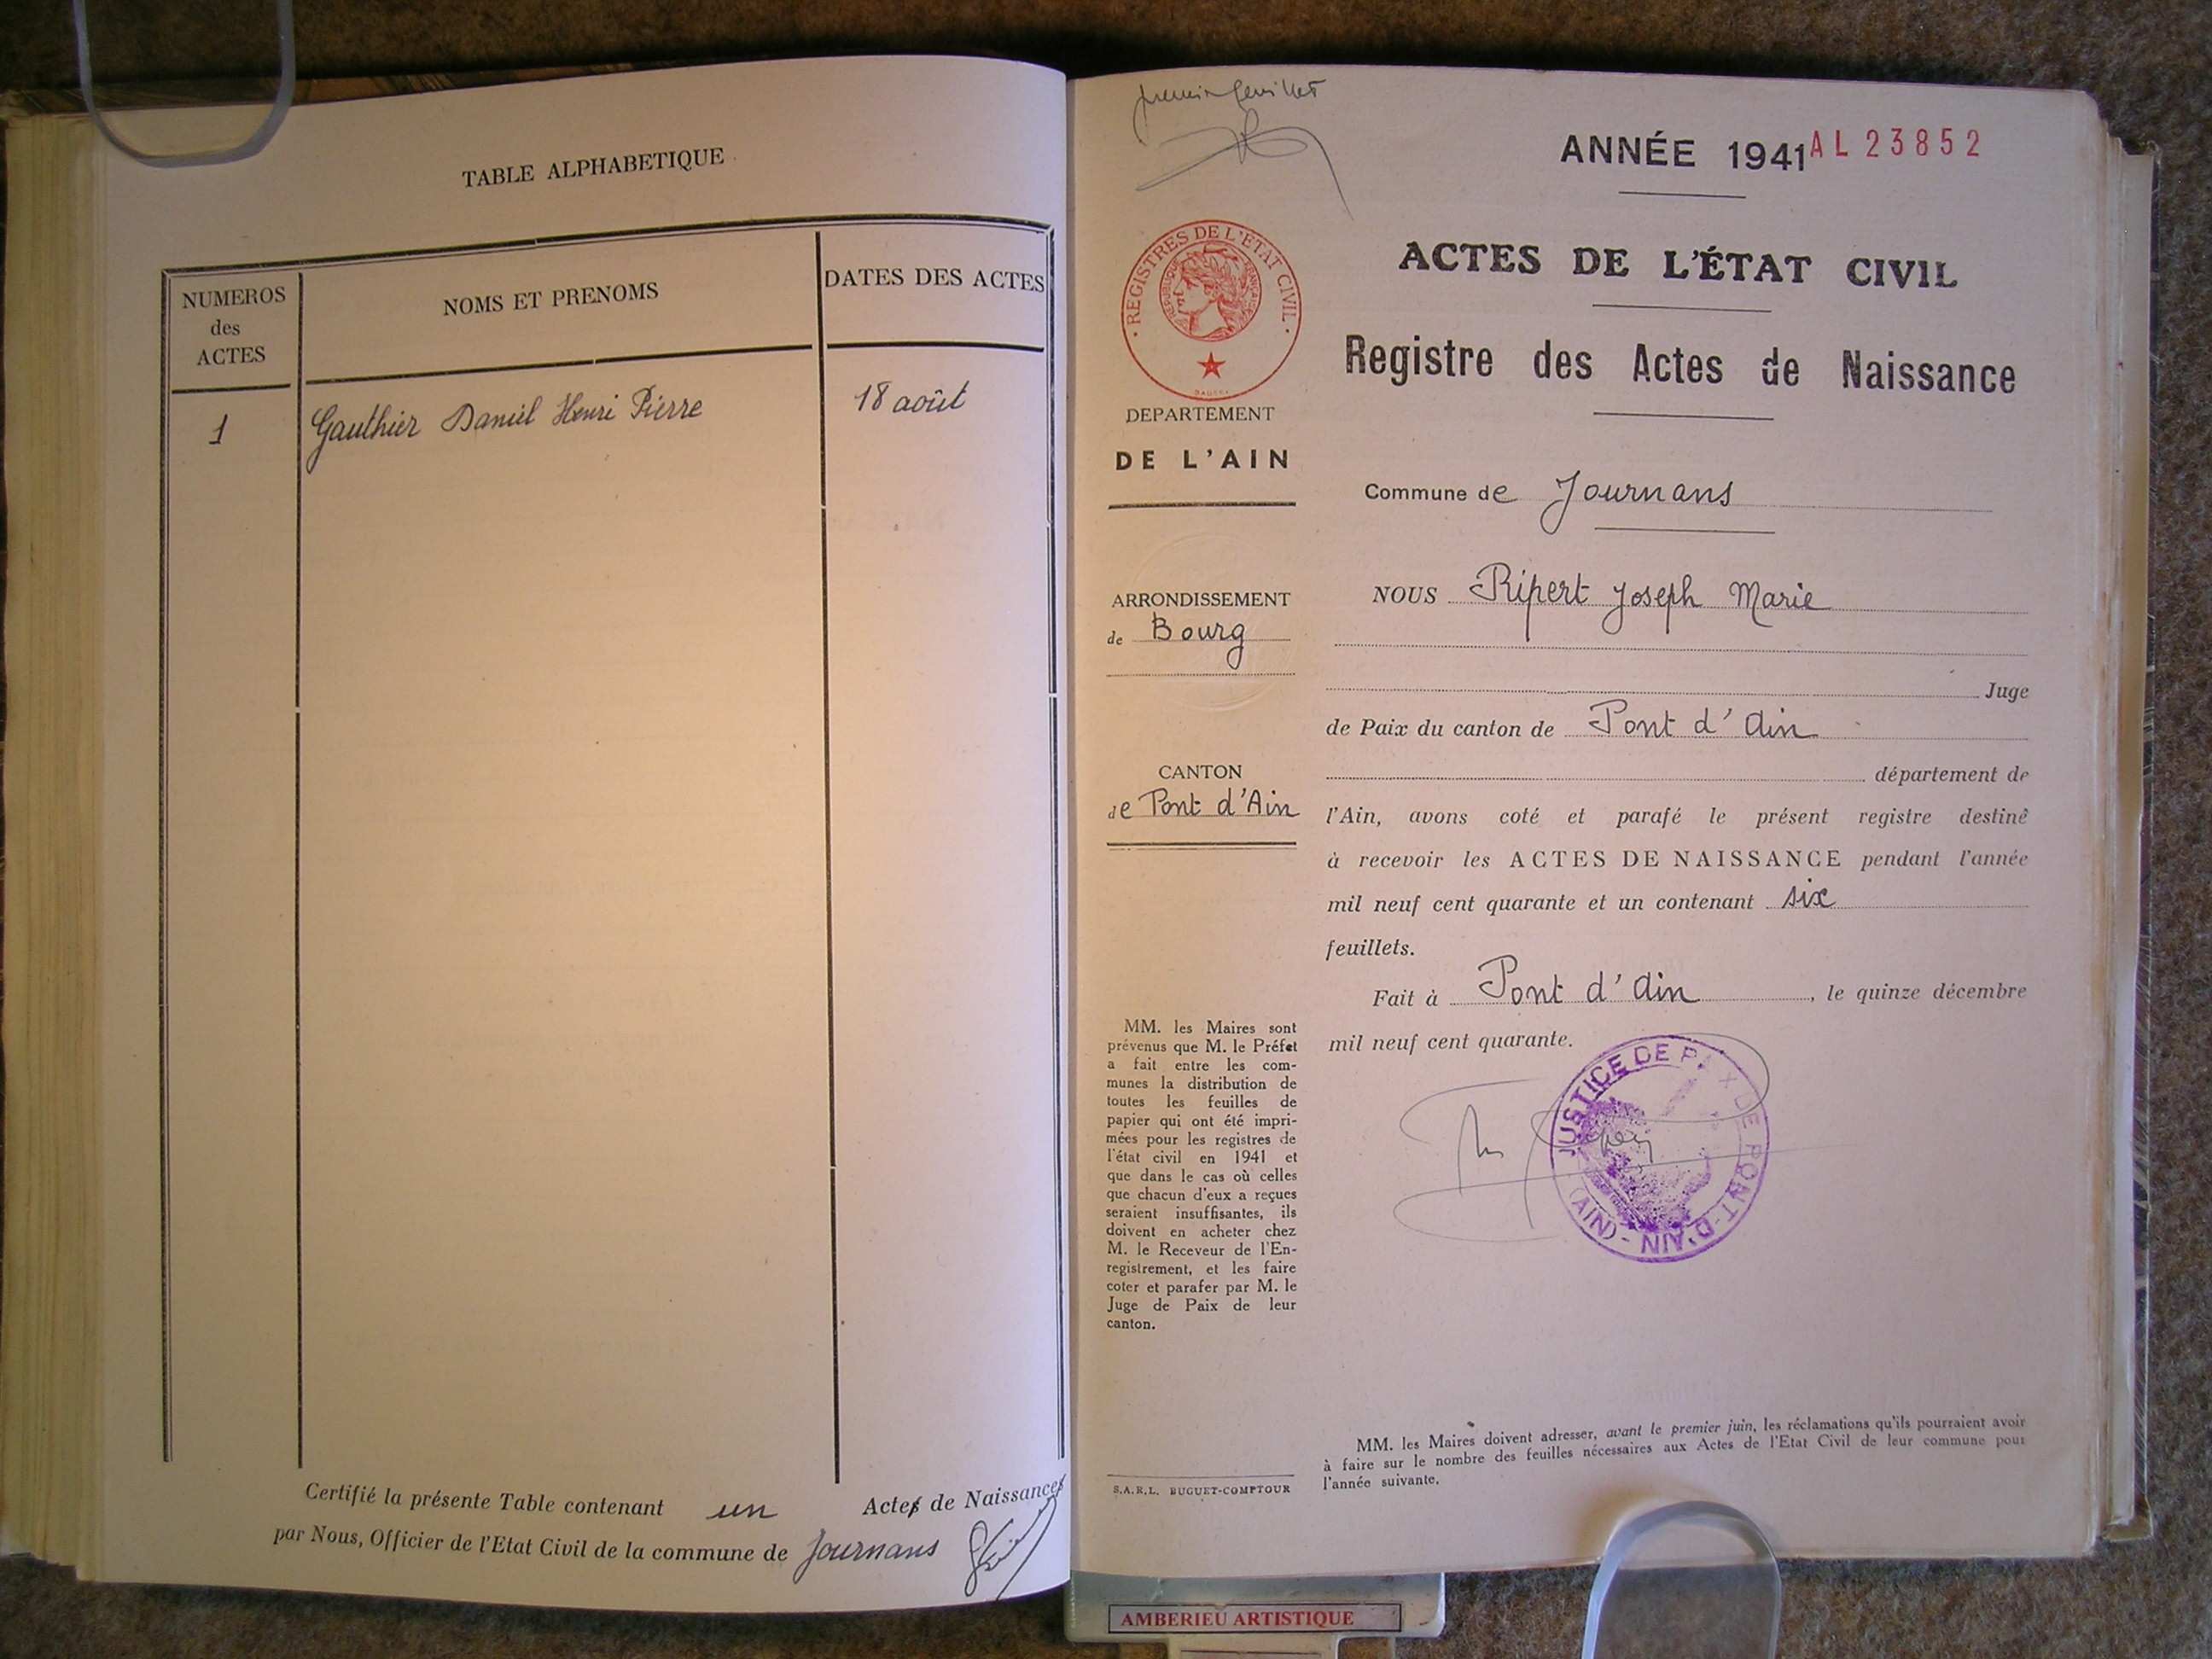 TABLE ALPHABETIQUE
NUMEROS
des
ACTES
NOMS ET PRENOMS
DATES DES ACTES
1
Gauthier Daniel Henri Pierre
18 août
Certifié la présente Table contenant un Actes de Naissances
par Nous, Officier de l'Etat Civil de la commune de Journans
premier feuillet
ANNÉE 1941
AL 23852
REGISTRES DE L'ETAT CIVIL
REPUBLIQUE FRANÇAISE
DEPARTEMENT
DE L'AIN
ARRONDISSEMENT
de Bourg
CANTON
de Pont d'Ain
MM. les Maires sont
prévenus que M. le Préfet
a fait entre les com-
munes la distribution de
toutes les feuilles de
papier qui ont été impri-
mées pour les registres de
l'état civil en 1941 et
que dans le cas où celles
que chacun d'eux a reçues
seraient insuffisantes, ils
doivent en acheter chez
M. le Receveur de l'En-
registrement, et les faire
coter et parafer par M. le
Juge de Paix de leur
canton.
S.A.R.L. BUGUET-COMPTOUR
ACTES DE L'ÉTAT CIVIL
Registre des Actes de Naissance
Commune de Journans
NOUS Ripert Joseph Marie
Juge
de Paix du canton de Pont d'Ain
département de
l'Ain, avons coté et parafé le présent registre destiné
à recevoir les ACTES DE NAISSANCE pendant l'année
mil neuf cent quarante et un contenant six
feuillets.
Fait à Pont d'Ain, le quinze décembre
mil neuf cent quarante.
JUSTICE DE PAIX DE PONT-D'AIN - (AIN)
MM. les Maires doivent adresser, avant le premier juin, les réclamations qu'ils pourraient avoir
à faire sur le nombre des feuilles nécessaires aux Actes de l'Etat Civil de leur commune pour
l'année suivante.
AMBERIEU ARTISTIQUE